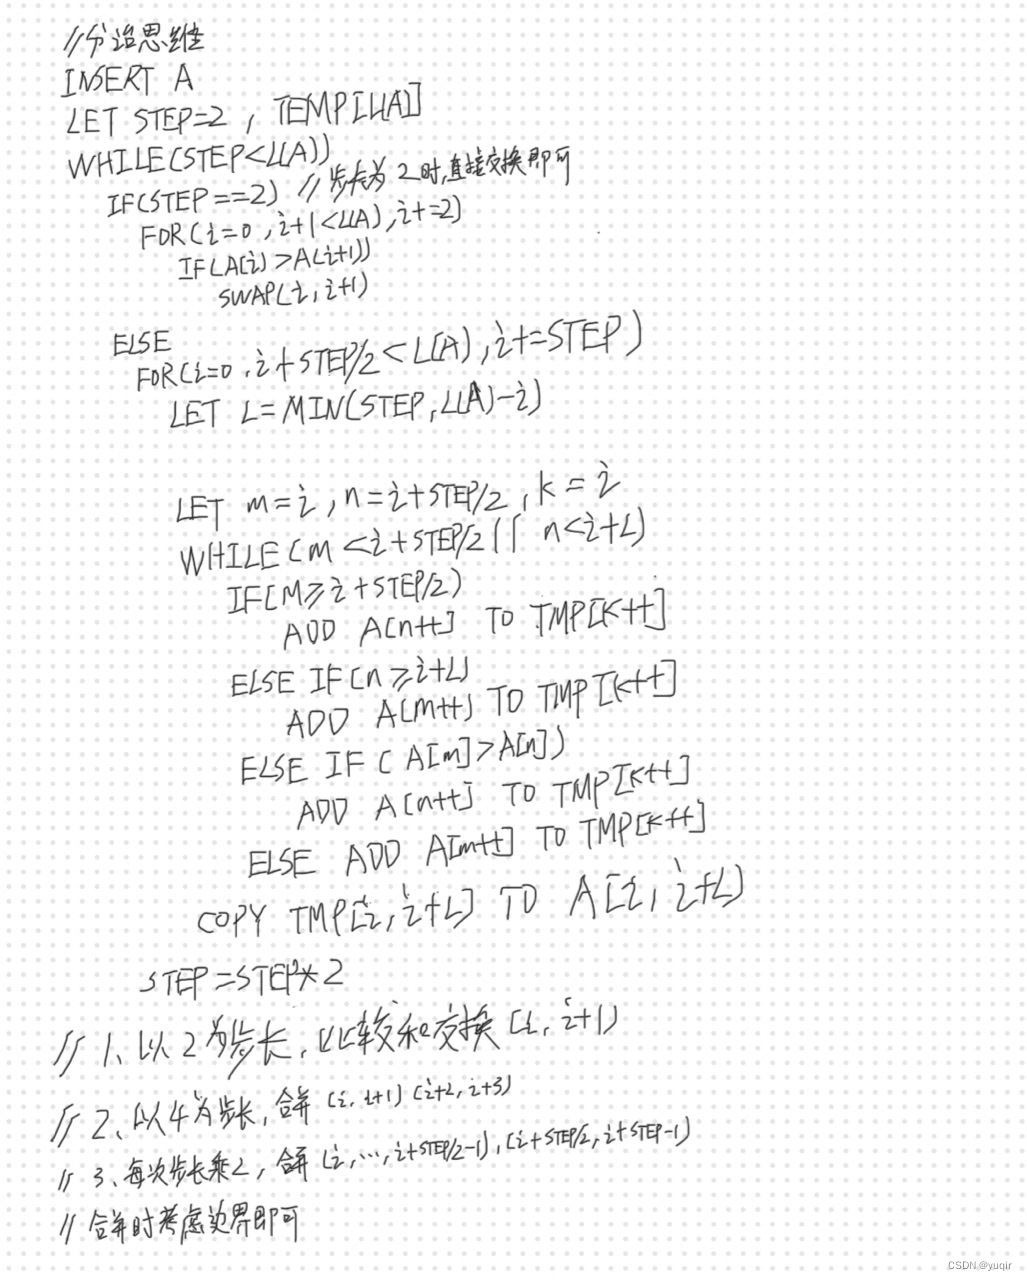 //分治思维
INSERT A
LET STEP=2 , TEMP[L(A)]
WHILE(STEP<L(A))
IF(STEP==2) //步长为2时,直接交换即可
FOR(i=0,i+1<L(A),i+=2)
IF(A(i)>A(i+1))
SWAP(i,i+1)
ELSE
FOR(i=0,i+STEP/2<L(A),i+=STEP)
LET L=MIN(STEP,L(A)-i)
LET m=i,n=i+STEP/2,k=i
WHILE(m<i+STEP/2|| n<i+L)
IF(M≥i+STEP/2)
ADD A[n++] TO TMP[K++]
ELSE IF(n≥i+L)
ADD A[M++] TO TMP[K++]
ELSE IF( A[m]>A[n])
ADD A[n++] TO TMP[K++]
ELSE ADD A[m++] TO TMP[K++]
COPY TMP[i,i+L] TO A[i,i+L)
STEP=STEP*2
// 1、以2为步长,比较和交换[i,i+1)
// 2、以4为步长,合并(i,i+1)(i+2,i+3)
// 3、每次步长乘2,合并(i,…,i+STEP/2-1),(i+STEP/2,i+STEP-1)
// 合并时考虑边界即可
CSDN @yuqir